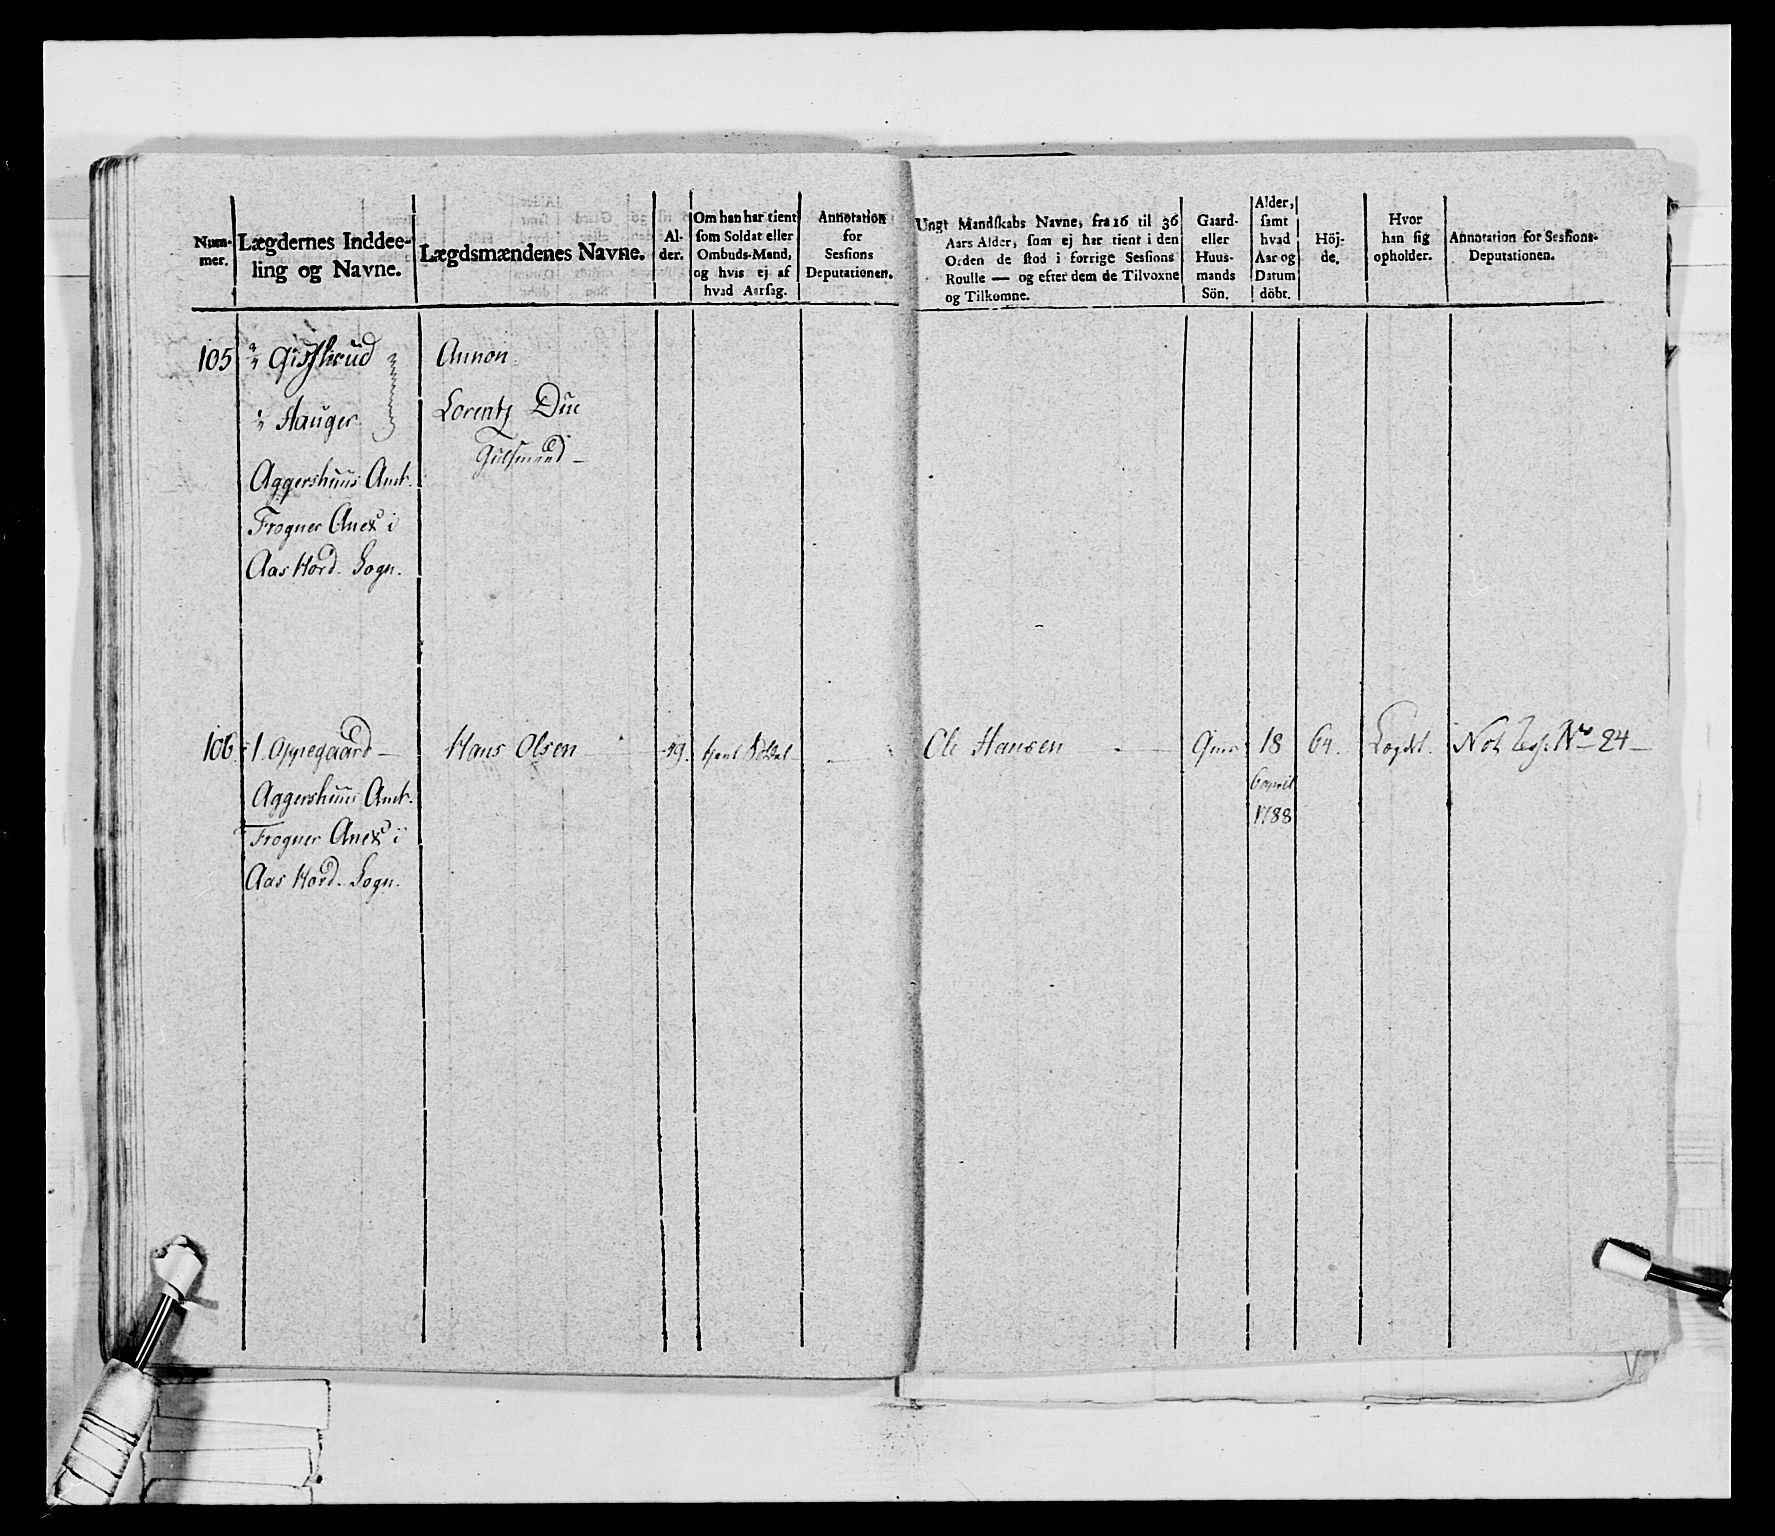 Num-
mer.
Lægdernes Inddee-
ling og Navne.
Lægdsmændenes Navne.
Al-
der.
Om han har tient
som Soldat eller
Ombuds-Mand,
og hvis ej af
hvad Aarsag.
Annotation
for
Sessions
Deputationen.
Ungt Mandskabs Navne, fra 16 til 36
Aars Alder, som ej har tient i den
Orden de stod i forrige Sessions
Roulle — og efter dem de Tilvoxne
og Tilkomne.
Gaard-
eller
Huus-
mands
Sön.
Alder,
samt
hvad
Aar og
Datum
döbt.
Höj-
de.
Hvor
han sig
opholder.
Annotation for Sessions-
Deputationen.
105
Annon
Hauger
Lorentz Due
Aggershuus Amt.
Frogner Anex i
Aas Hord. Sogn.
106. 1 Oppegaard — Hans Olsen 49. tient Soldat
Ole Hansen — Gmr 18 64. Logdt. No 24 —
6 april
1788
Aggershuus Amt.
Frogner Anex i
Aas Hord. Sogn.